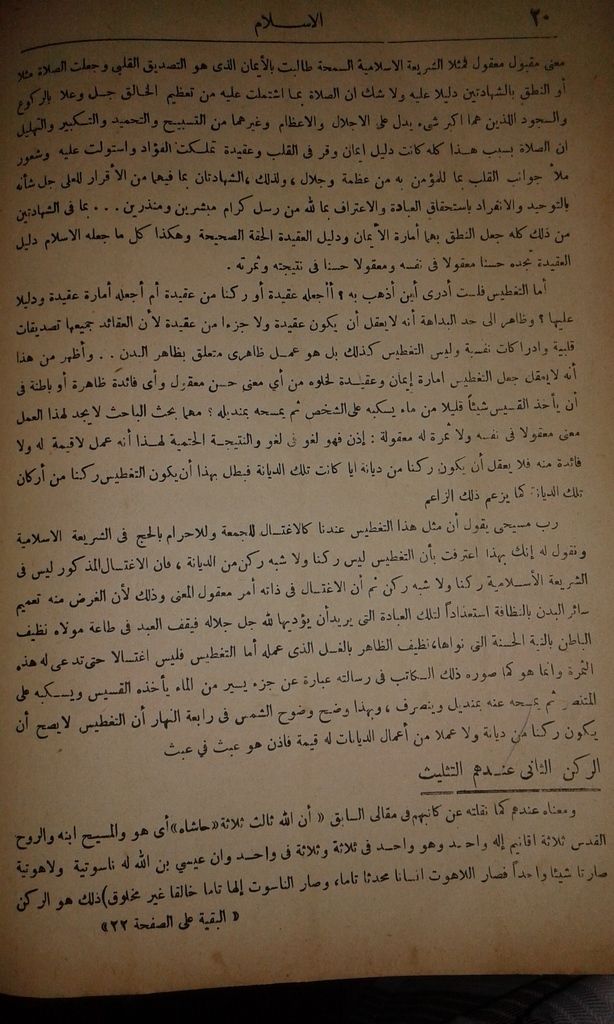 ٣٠
الاسلام
معنى مقبول معقول فمثلا الشريعة الاسلامية السمحة طالبت بالأيمان الذى هو التصديق القلبي وجعلت الصلاة مثلا
أو النطق بالشهادتين دليلا عليه ولا شك ان الصلاة بما اشتملت عليه من تعظيم الخالق جل وعلا بالركوع
والسجود اللذين هما اكبر شىء يدل على الاجلال والاعظام وغيرهما من التسبيح والتحميد والتكبير والتهليل
ان الصلاة بسبب هذا كله كانت دليل ايمان وقر فى القلب وعقيدة تملكت الفؤاد واستولت عليه وشعور
ملأ جوانب القلب بما للمؤمن به من عظمة وجلال ، ولذلك ، الشهادتان بما فيهما من الأقرار للعلى جل شأنه
بالتوحيد والانفراد باستحقاق العبادة والاعتراف بما لله من رسل كرام مبشرين ومنذرين . . . بما فى الشهادتين
من ذلك كله جعل النطق بهما أمارة الأيمان ودليل العقيدة الحقة الصحيحة وهكذا كل ما جعله الاسلام دليل
العقيدة تجده حسنا معقولا فى نفسه ومعقولا حسنا فى نتيجته وثمرته .
أما التغطيس فلست أدرى أين أذهب به ؟ أأجعله عقيدة أو ركنا من عقيدة أم أجعله أمارة عقيدة ودليلا
عليها ؟ وظاهر الى حد البداهة أنه لايعقل أن يكون عقيدة ولا جزءا من عقيدة لأن العقائد جميعها تصديقات
قلبية وادراكات نفسية وليس التغطيس كذلك بل هو عمل ظاهرى متعلق بظاهر البدن . . وأظهر من هذا
أنه لايعقل جعل التغطيس امارة إيمان وعقيدة لخلوه من أي معنى حسن معقول وأى فائدة ظاهرة أو باطنة فى
أن يأخذ القسيس شيئاً قليلا من ماء يسكبه على الشخص ثم يمسحه بمنديله ؟ مهما بحث الباحث لايجد لهذا العمل
معنى معقولا فى نفسه ولا ثمرة له معقولة : إذن فهو لغو فى لغو والنتيجة الحتمية لهذا أنه عمل لاقيمة له ولا
فائدة منه فلا يعقل أن يكون ركنا من ديانة ايا كانت تلك الديانة فبطل بهذا أن يكون التغطيس ركنا من أركان
تلك الديانة كما يزعم ذلك الزاعم
رب مسيحى يقول أن مثل هذا التغطيس عندنا كالاغتسال للجمعة وللاحرام بالحج فى الشريعة الاسلامية
ونقول له إنك بهذا اعترفت بأن التغطيس ليس ركنا ولا شبه ركن من الديانة ، فان الاغتسال المذكور ليس فى
الشريعة الأسلامية ركنا ولا شبه ركن ثم أن الاغتسال فى ذاته أمر معقول المعنى وذلك لأن الغرض منه تعميم
سائر البدن بالنظافة استعداداً لتلك العبادة التى يريد أن يؤديها لله جل جلاله فيقف العبد فى طاعة مولاه نظيف
الباطن بالنية الحسنة التى نواها، نظيف الظاهر بالغسل الذى عمله أما التغطيس فليس اغتسالا حتى تدعى له هذه
الثمرة وانما هو كما صوره ذلك الكاتب فى رسالته عبارة عن جزء يسير من الماء يأخذه القسيس ويسكبه على
المتنصر ثم يمسحه عنه بمنديل وينصرف ، وبهذا وضح وضوح الشمس فى رابعة النهار أن التغطيس لايصح أن
يكون ركنا من ديانة ولا عملا من أعمال الديانات له قيمة فاذن هو عبث في عبث
الركن الثانى عندهم التثليث
ومعناه عندهم كما نقلته عن كاتبهم فى مقالى السابق « أن الله ثالث ثلاثة «حاشاه» أى هو والمسيح ابنه والروح
القدس ثلاثة اقانيم إله واحد وهو واحد فى ثلاثة وثلاثة فى واحد وان عيسي بن الله له ناسوتية ولاهوتية
صارتا شيئا واحداً فصار اللاهوت انسانا محدثا تاما، وصار الناسوت إلها تاما خالقا غير مخلوق) ذلك هو الركن
« البقية على الصفحة ٢٢»